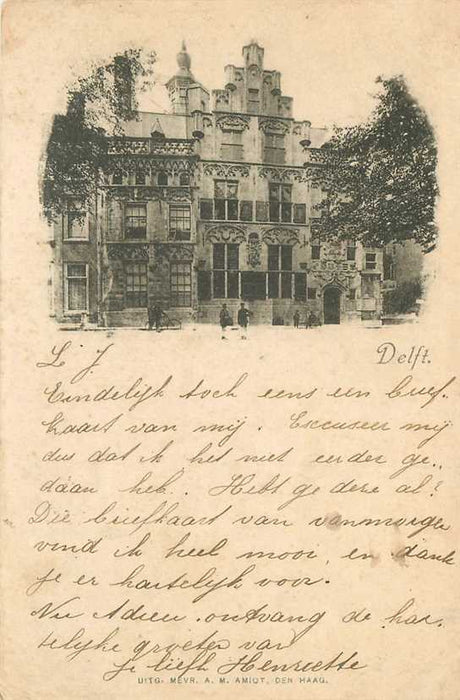 Delft.
L J
Eindelijk toch eens een brief.
kaart van mij. Excuseer mij
dus dat ik het niet eerder ge..
daan heb. Hebt ge deze al?
Die briefkaart van vanmorgen
vind ik heel mooi, en dank
je er hartelijk voor.
Nu Adieu. ontvang de har
telijke groeten van
je liefh Henriette
UITG. MEVR. A. M. AMIOT, DEN HAAG.